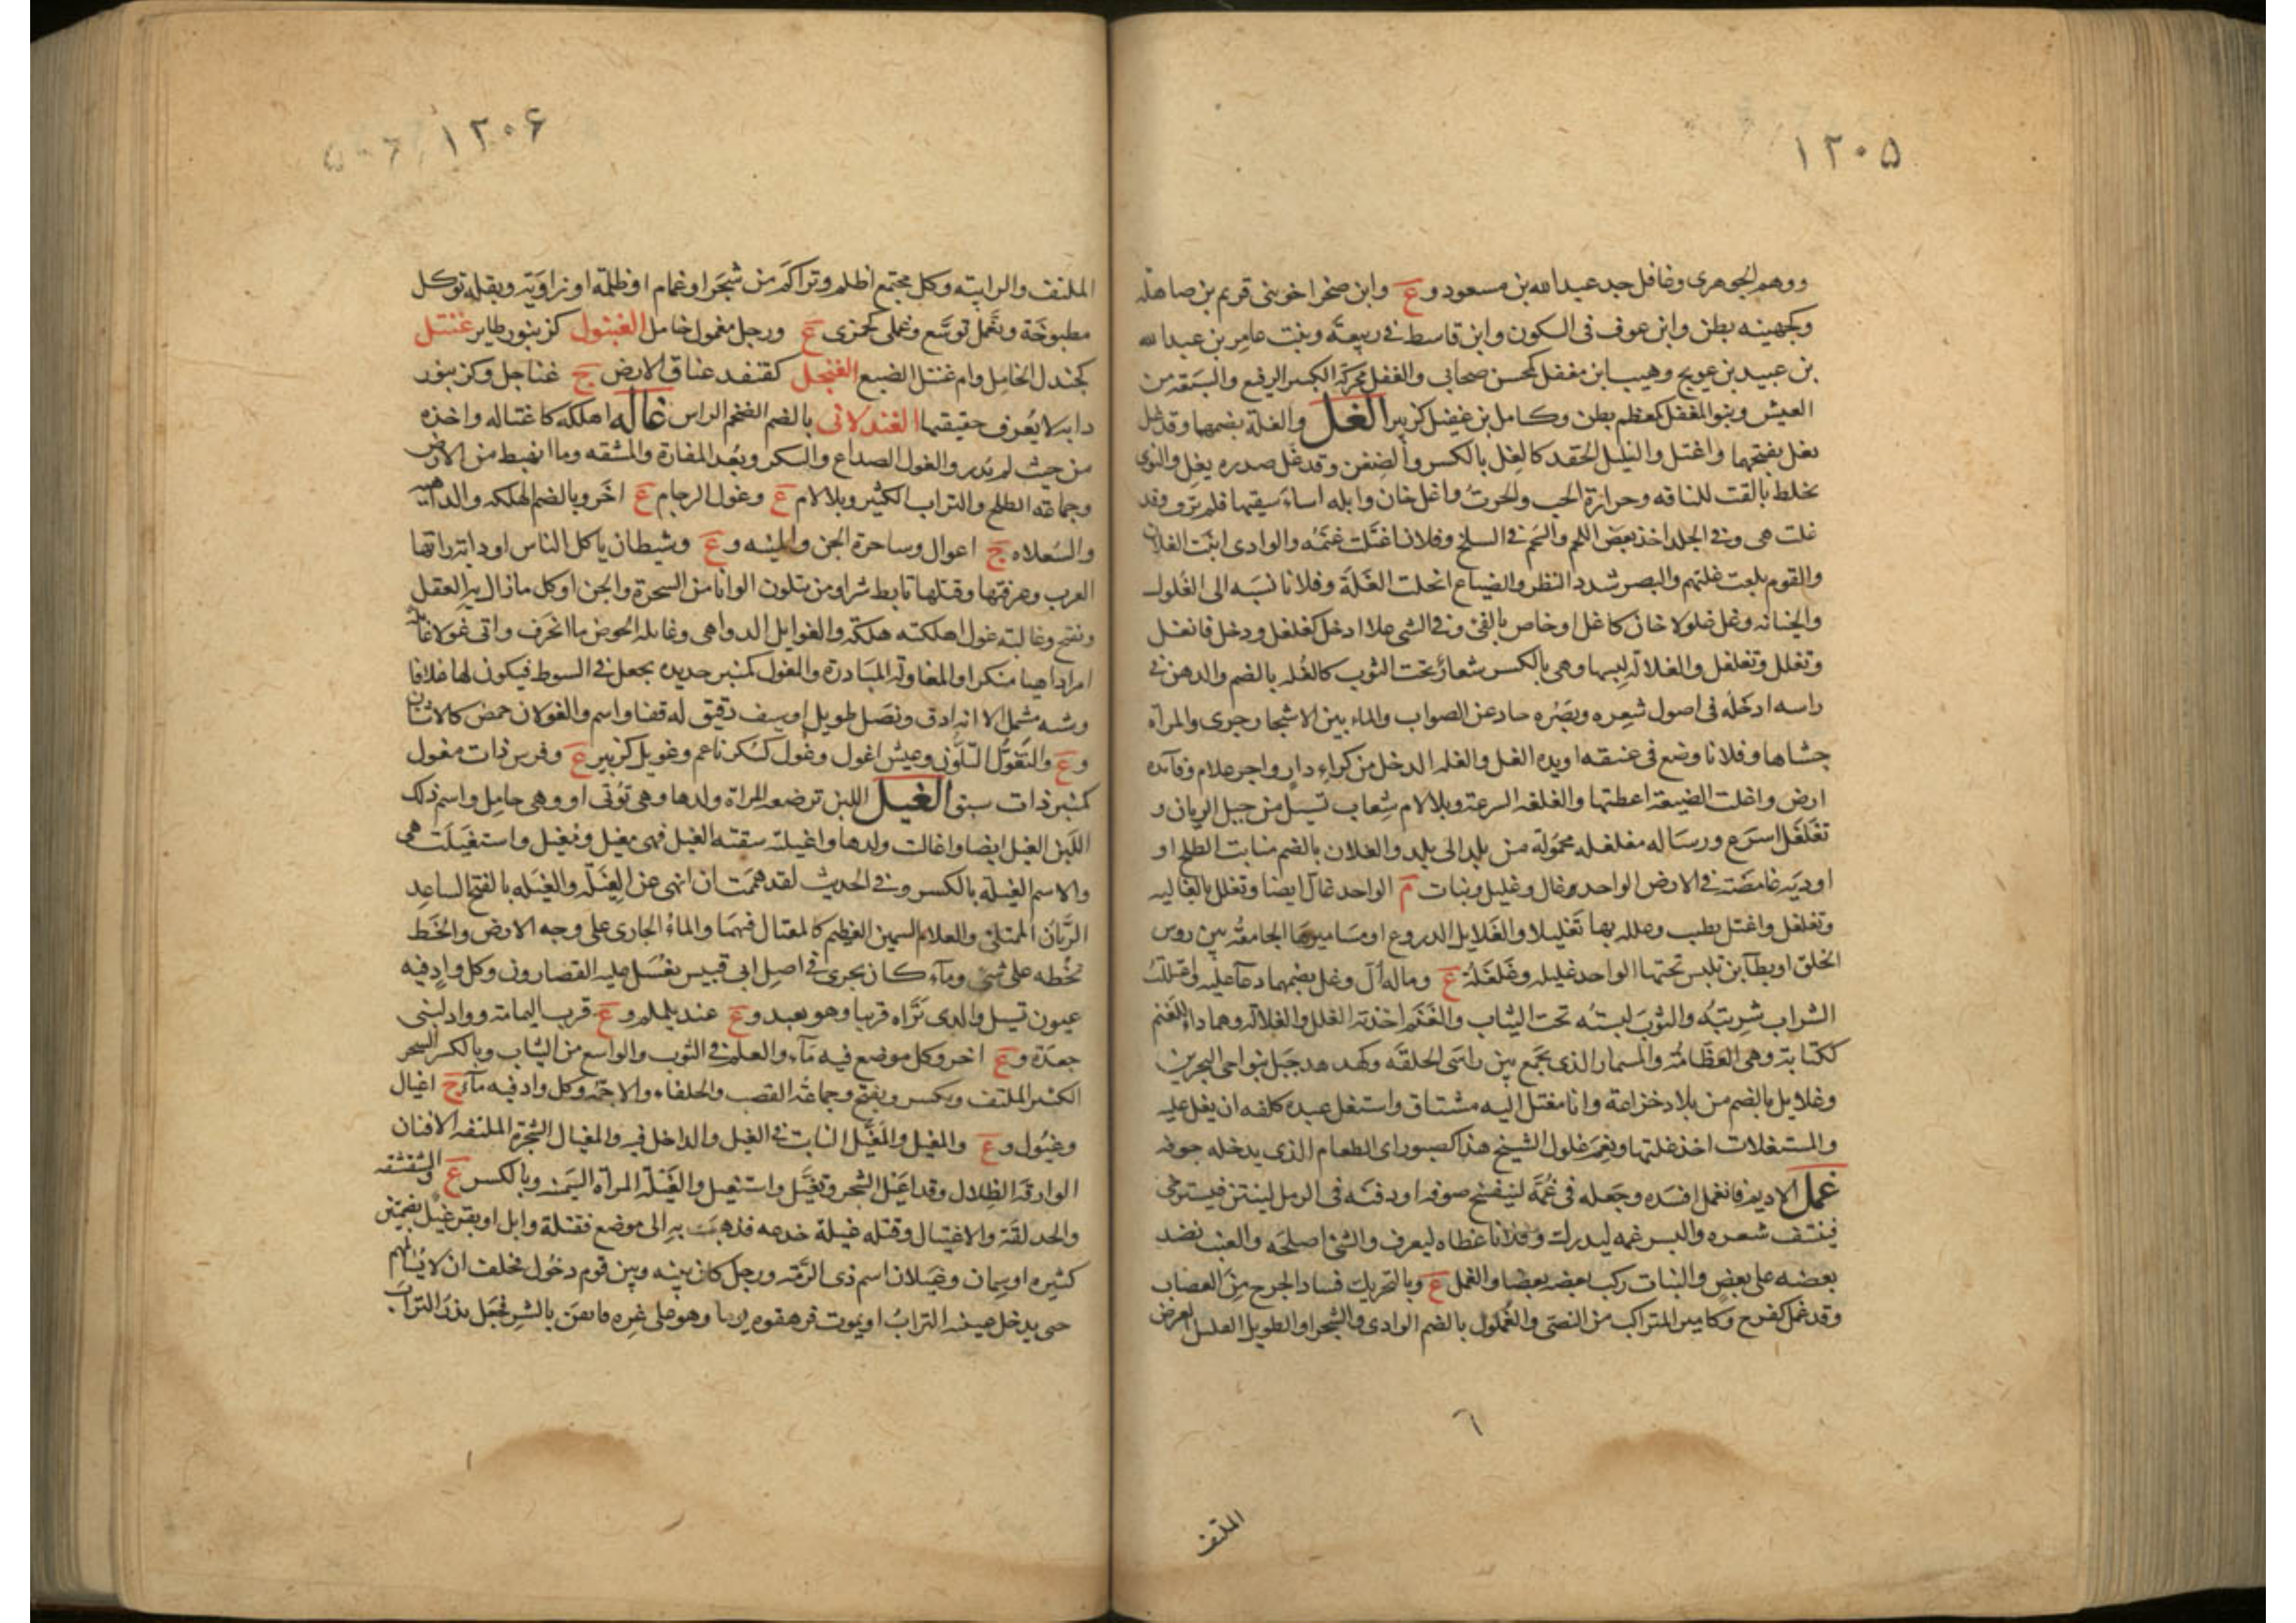 ١٢٠٥
ووهم الجوهرى وغافل جد عبد الله بن مسعود و ع وابن صخر اخو بنى قريم بن صاهله
وكجهينه بطن وابن عوف فى السكون وابن قاسط فى ربيعة وبنت عامر بن عبد الله
بن عبيد بن عويج وهبيب ابن مغفل كمحسن صحابى والغفل محركة الكبير الرفيع والسعة من
العيش وبنو المغفل كمعظم بطن وكامل بن غفيل كزبير الغل والغلة بضمهما وقد غل
يغل بفتحهما واغتل والغليل الحقد كالغل بالكسر والضغن وقد غل صدره يغل والنوى
يخلط بالقت للناقه وحرارة الحب والحزن واغل خان وابله اساء سقيها فلم ترو وقد
غلت هى وفى الجلد اخذ بعض اللحم والشحم فى السلخ وفلانا اغتلت غنمه والوادى انبت الغلان
والقوم بلغت غلتهم والبصر شدد النظر والضياع اتحلت الغلة وفلانا نسبه الى الغلول
والخيانه وغل غلولا خان كاغل او خاص بالفئ وفى الشى غلا ادخل كغلغل ودخل فانغل
وتغلل وتغلغل والغلالة لبسها وهى بالكسر شعار تحت الثوب كالغله بالضم والدهن فى
راسه ادخله فى اصول شعره وبصره حاد عن الصواب والماء بين الاشجار جرى والمراة
حشاها وفلانا وضع فى عنقه او يده الغل والغله الدخل من كراء دار واجر غلام وفائده
ارض واغلت الضيعة اعطتها والغلغله السرعة وبلا لام شعاب تسيل من جبل الريان و
تغلغل اسرع ورساله مغلغله محمولة من بلد الى بلد والغلان بالضم منابت الطلح او
اودية غامضة فى الارض الواحد غال وغليل ونبات م الواحد غال ايضا وتغلل بالغاليه
وتغلغل واغتل تطيب وغلله بها تغليلا والغلايل الدروع او مساميرها الجامعة بين روس
الخلق او بطاين تلبس تحتها الواحد غليله وغلغله ع وماله أل وغل بضمهما دعا عليه واغتللت
الشراب شربته والثوب لبسته تحت الثياب والغنم اخذته الغلل والغلالة وهما داء للغنم
ككتابة وهى العظامة والمسمار الذى يجمع بين راسى الحلقه وكهدهد جبل بنواحى البحرين
وغلايل بالضم من بلاد خزاعة وانا مغتل اليه مشتاق واستغل عبده كلفه ان يغل عليه
والمستغلات اخذ غلتها ونعم غلول الشيخ هذا كصبور اى الطعام الذى يدخله جوفه
غمل الاديم فانغمل افسده وجعله فى غمة لينفسخ صوفه او دفنه فى الرمل لينتن فيسترخى
فينتف شعره والبسر غمه ليدرك وفلانا غطاه ليعرق والشئ اصلحه والعنب نضد
بعضه على بعض والنبات ركب بعضه بعضا والغمل ع وبالتحريك فساد الجرح من العصاب
وقد غمل كفرح وكامير المتراكب من النصى والغملول بالضم الوادى ذو الشجر او الطويل القليل العرض
٦
الملتف
١٢٠۶
الملتف والرابية وكل مجتمع اظلم وتراكم من شجر او غمام او ظلمة او زاوية وبقلة توكل
مطبوخة وتغمل توسع وغملى كجمزى ع ورجل مغمول خامل الغنبول كزنبور طاير غنتل
كجندل الخامل وام غنتل الضبع الغنجل كقنفذ عناق الارض ج غناجل وكزنبور
دابه لا يعرف حقيقتها الغندلانى بالضم الضخم الراس غاله اهلكه كاغتاله واخذه
من حيث لم يدر والغول الصداع والسكر وبعد المفازة والمشقه وما انهبط من الارض
وجماعة الطلح والتراب الكثير وبلا لام ع وغول الرجام ع اخر وبالضم الهلكه والداهيه
والسعلاه ج اغوال وساحرة الجن والمنيه و ع وشيطان ياكل الناس او دابة راتها
العرب وعرفتها وقتلها تابط شرا ومن يتلون الوانا من السحرة والجن او كل ما زال به العقل
وتفتح وغالبته غول اهلكته هلكة والغوايل الدواهى وغايله الحوض ما انخرف واتى غولا غايله
امرا داهيا منكرا والمغاولة المبادرة والمغول كمنبر حديده بجعل فى السوط فيكون لها غلافا
وشبه مشمل الا انه ادق ونصل طويل او سيف دقيق له قفا واسم والغولان حمض كالاشنان
و ع والتغول التلون وعيش اغول وغول كسكر ناعم وغويل كزبير ع وفرس ذات مغول
كمنبر ذات سبق الغيل اللبن ترضعه المراة ولدها وهى توتى او وهى حامل واسم ذلك
اللبن الغيل ايضا واغالت ولدها واغيلته سقته الغيل فهى مغيل ومغيل واستغيلت هى
والاسم الغيلة بالكسر وفى الحديث لقد هممت ان انهى عن الغيلة والغيله بالفتح الساعد
الريان الممتلئ والغلام السمين العظيم كالمغتال فيهما والماء الجارى على وجه الارض والخط
تخطه على شئ وماء كان يجرى فى اصل ابى قبيس يغسل عليه القصارون وكل واد فيه
عيون تسيل والذى تراه قريبا وهو بعيد و ع عند يلملم و ع قرب اليمامة وواد لبنى
جعدة و ع اخر وكل موضع فيه ماء والعلم فى الثوب والواسع من الثياب وبالكسر الشجر
الكثير الملتف ويكسر ويفتح وجماعة القصب والحلفاء والاجمة وكل واد فيه ماء ج اغيال
وغيول و ع والمغيل والمغيل النابت فى الغيل والداخل فيه والمغيال الشجرة الملتفه الافنان
الوارقة الظلال وقد اغيل الشجر وتغيل واستغيل والغيلة المراة السمينه وبالكسر ع والشقشقه
والخديعة والاغتيال وقتله غيلة خدعه فذهب به الى موضع فقتله وابل او بقر غيل بضمتين
كثيره او سمان وغيلان اسم ذى الرمة ورجل كان بينه وبين قوم ذحول فحلف ان لا يسالمهم
حتى يدخل عينه التراب او يموت فرهقوه يوما وهو على غره فايقن بالشر فجعل يذر التراب
١